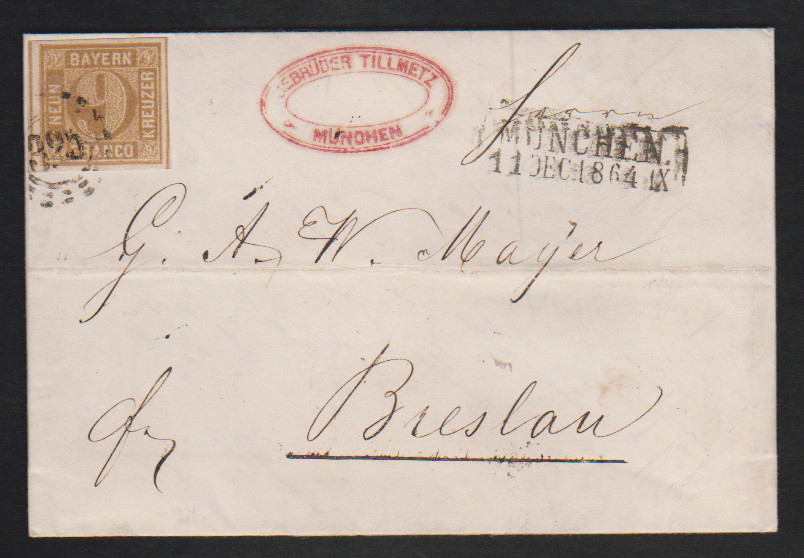 BAYERN
NEUN 9 KREUZER
FRANCO
325
GEBRÜDER TILLMETZ
MÜNCHEN
Herrn
MÜNCHEN.
11 DEC. 1864 IX
G. A. W. Mayer
Breslau